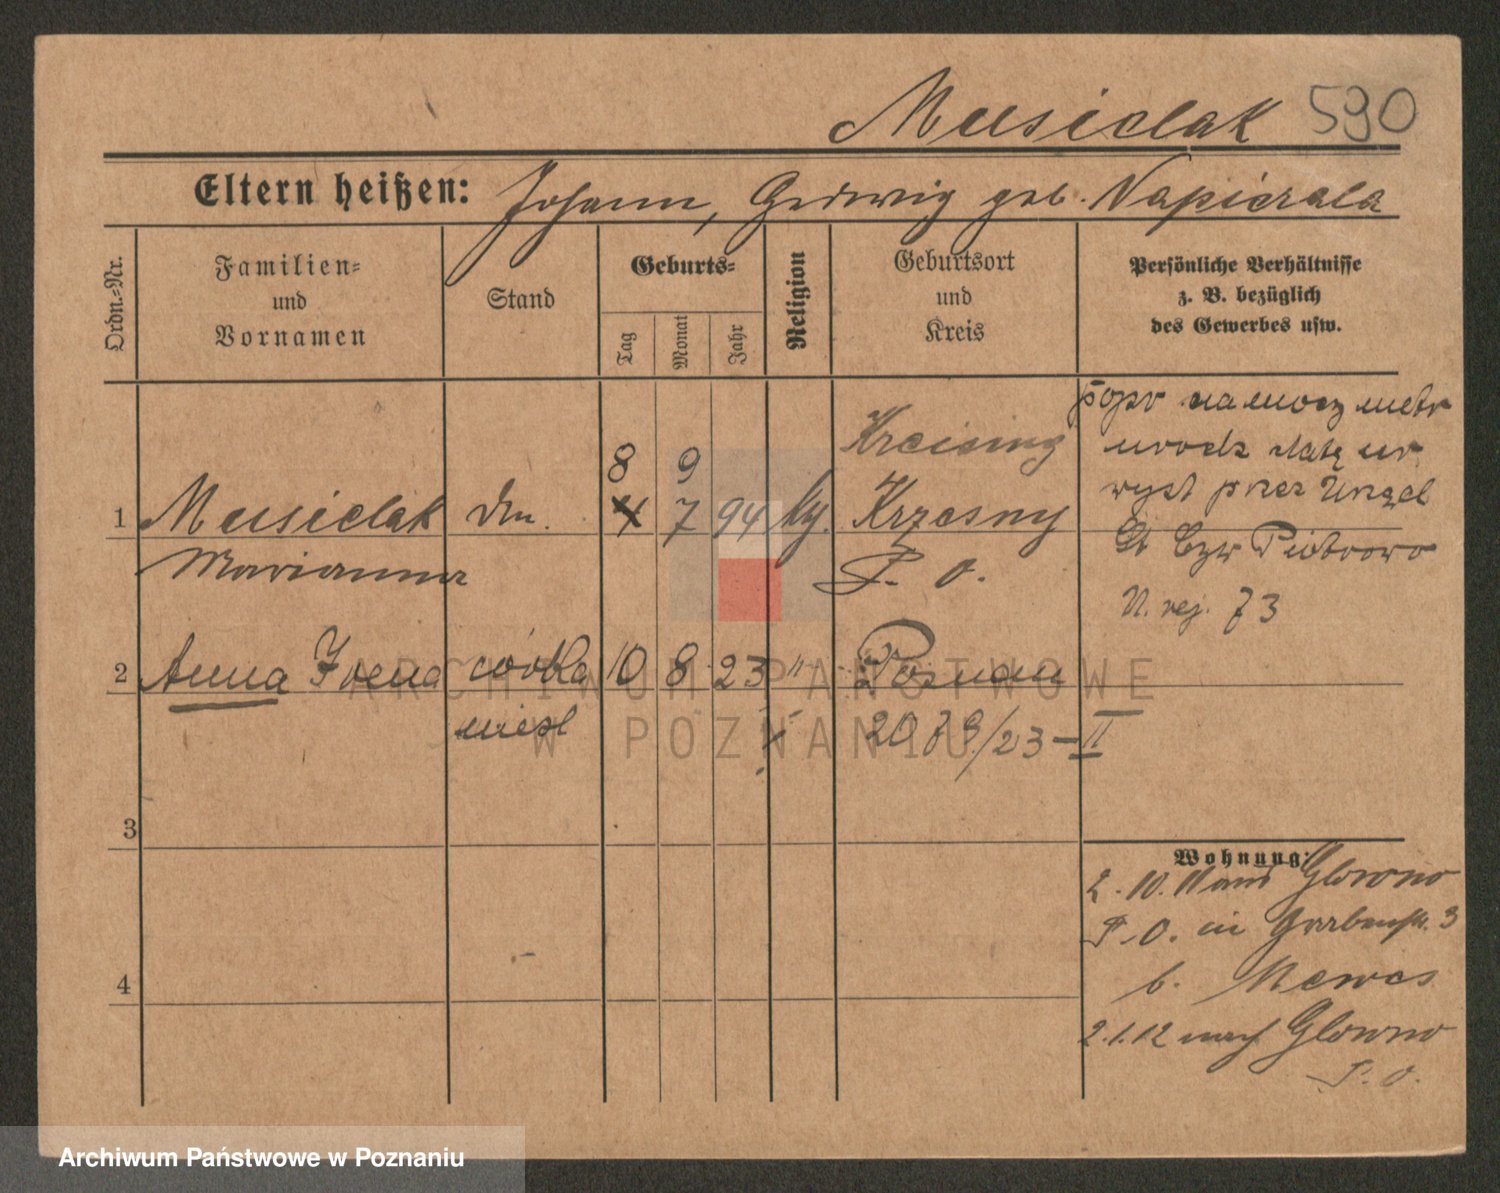 Musielak 590
Eltern heißen: Johann, Hedwig geb. Napierala
Ordn.-Nr.
Familien-
und
Vornamen
Stand
Geburts-
Tag
Monat
Jahr
Religion
Geburtsort
und
Kreis
Persönliche Verhältnisse
z. B. bezüglich
des Gewerbes usw.
popr na mocy metr
urodz datę ur
wyst przez Urząd
St Cyw Piotrowo
N. rej. 73
Kreising
8 9
1 Musielak 4 7 94 Krzesny
Marianna P. O.
2 Anna Irena córka 10 8 23 " Poznań
nieśl 2079/23-II
3
4
Wohnung:
2.10.11 aus Glowno
P. O. in Grabenstr. 3
b.
2.1.12 nach Glowno
P. O.
ARCHIWUM PAŃSTWOWE
W POZNANIU
Archiwum Państwowe w Poznaniu